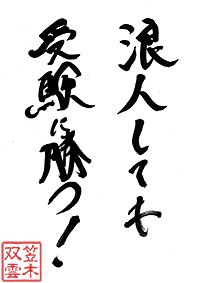 浪人しても
受験に勝つ!
笠木
双雲